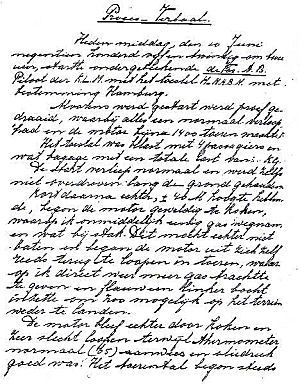 Proces-Verbaal.
Heden middag, den 10 Juni
negentien honderd vijf en twintig om twee
uur, startte ondergeteekende de Fas. A. B.
Piloot der K.L.M. met het toestel H.N.A.B.M. met
bestemming Hamburg.
Alvorens werd gestart werd proef ge-
draaid, waarbij alles een normaal verloop
had en de motor bijna 1400 toeren maakte.
Het toestel was belast met 4 passagiers en
wat bagage met een totale last van Kg.
De start verliep normaal en werd zelfs
niet overdreven lang de grond gehouden.
Kort daarna echter, ± 40 M. hoogte hebben-
de, begon de motor geweldig te koken,
waarop ik onmiddellijk eenig gas wegnam
en wat bij stak. Dit mocht echter niet
baten en begon de motor uit zich zelf
reeds terug te loopen in toeren, waar-
op ik direct weer meer gas trachtte
te geven en flauw een linker bocht
inzette om zoo mogelijk op het terrein
weder te landen.
De motor bleef echter door koken en
zeer slecht loopen terwijl thermometer
normaal (75) aanwees en oliedruk
goed was. Het toerental begon steeds